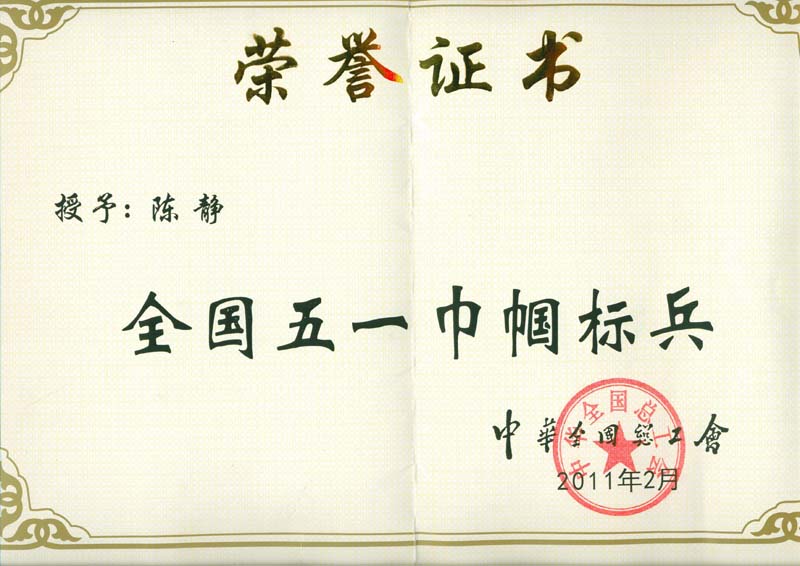 荣誉证书
授予：陈静
全国五一巾帼标兵
中華全國總工會
中华全国总工会
2011年2月